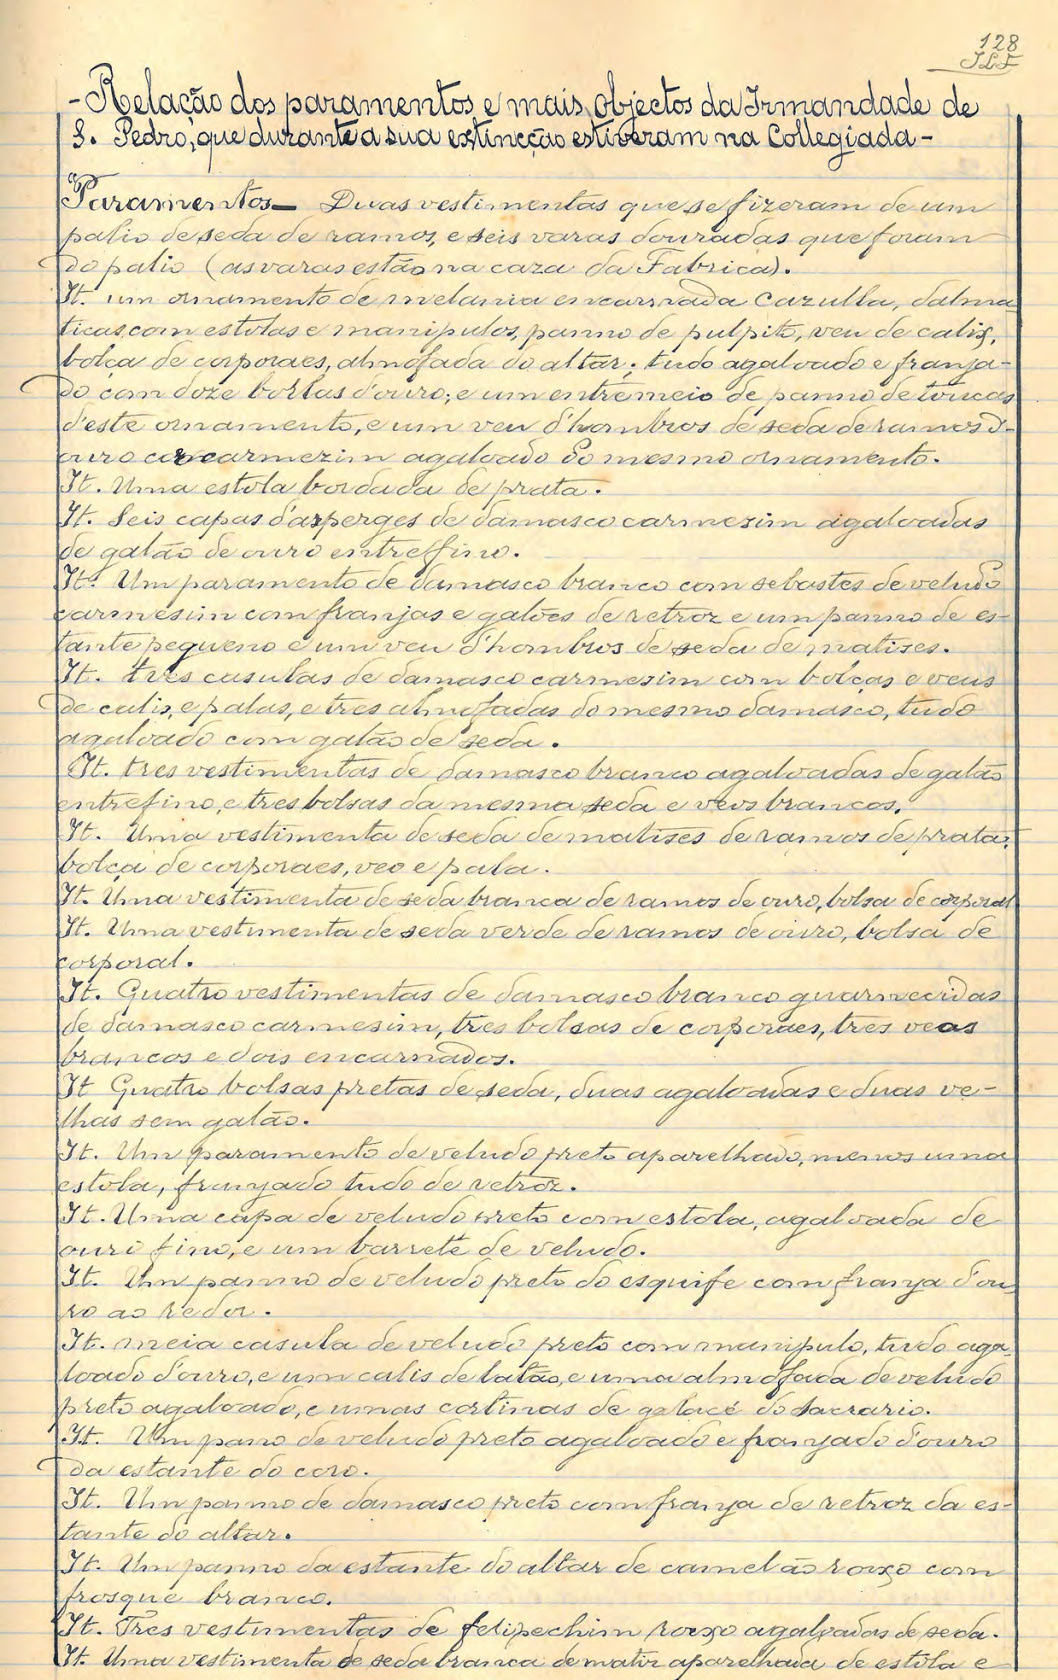 128
JLF
- Relação dos paramentos e mais objectos da Irmandade de
S. Pedro, que durante a sua extincção estiveram na Collegiada -
Paramentos - Duas vestimentas que se fizeram de um
palio de seda de ramos, e seis varas douradas que foram
do palio (as varas estão na caza da Fabrica).
It. um ornamento de melania encarnada cazulla, dalma
ticas com estolas e manipulos, panno de pulpito, veu de calix,
bolça de corporaes, almofada do altar; tudo agaloado e franja-
do com doze borlas d'ouro; e um entremeio de panno de toucas
d'este ornamento, e um veu d'hombros de seda de ramos d'
ouro carmezim agaloado do mesmo ornamento.
It. Uma estola bordada de prata.
It. Seis capas d'asperges de damasco carmesim agaloadas
de galão de ouro entreffino.
It. Um paramento de damasco branco com sebastes de veludo
carmesim com franjas e galões de retroz e um panno de es-
tante pequeno e um veu d'hombros de seda de matises.
It. tres casulas de damasco carmesim com bolças e veus
de calis, e palas, e tres almofadas do mesmo damasco, tudo
agaloado com galão de seda.
It. tres vestimentas de damasco branco agaloadas de galão
entrefino, e tres bolsas da mesma seda e veos brancos.
It. Uma vestimenta de seda de matises de ramos de prata,
bolça de corporaes, veo e pala.
It. Uma vestimenta de seda branca de ramos de ouro, bolsa de corporal
It. Uma vestimenta de seda verde de ramos de ouro, bolsa de
corporal.
It. Quatro vestimentas de damasco branco guarnecidas
de damasco carmesim, tres bolsas de corporaes, tres veos
brancos e dois encarnados.
It Quatro bolsas pretas de seda, duas agaloadas e duas ve-
lhas sem galão.
It. Um paramento de veludo preto aparelhado, menos uma
estola, franjado tudo de retroz.
It. Uma capa de veludo preto com estola, agaloada de
ouro fino, e um barrete de veludo.
It. Um panno de veludo preto do esquife com franja d'ou
ro ao redor.
It. meia casula de veludo preto com manipulo, tudo aga
loado d'ouro, e um calis de latão, e uma almofada de veludo
preto agaloado, e umas cortinas de galacé do sacrario.
It. Um pano de veludo preto agaloado e franjado d'ouro
da estante do coro.
It. Um panno de damasco preto com franja de retroz da es-
tante do altar.
It. Um panno da estante do altar de camelão roixo com
frosque branco.
It. Tres vestimentas de felipechim roixo agaloadas de seda.
It. Uma vestimenta de seda branca de matiz aparelhada de estola e